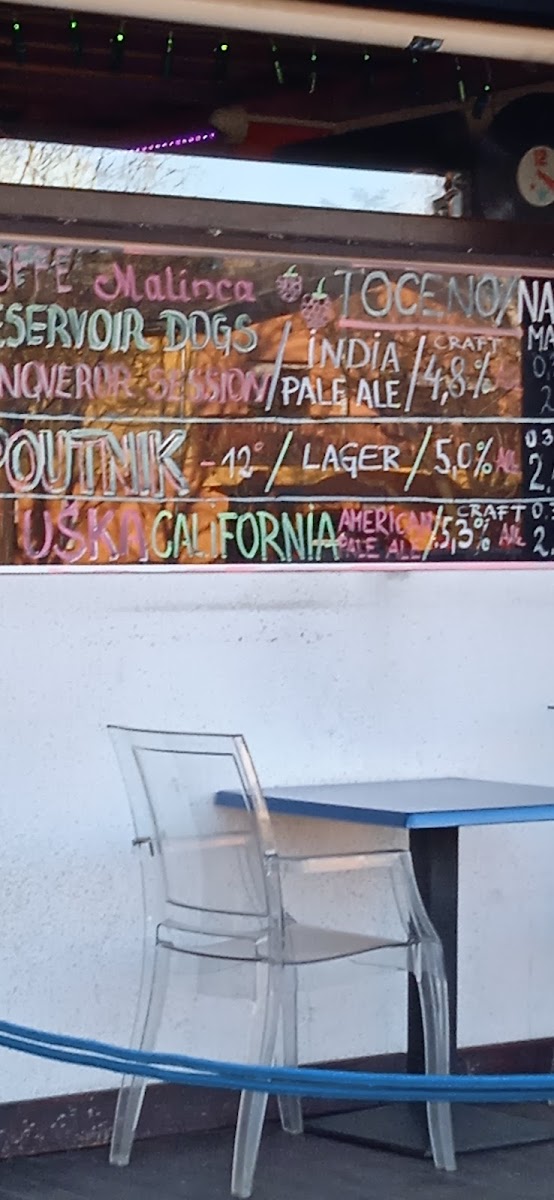 OFFE Malinca TOČENO NA
ESERVOIR DOGS / INDIA CRAFT MA
NQUEROR SESSION / PALE ALE / 4,8% 0,
POUTNIK - 12° / LAGER / 5,0% Alc 0.3
2,
UŠKA CALIFORNIA AMERICAN CRAFT
PALE ALE / 5,3% Alc 2.